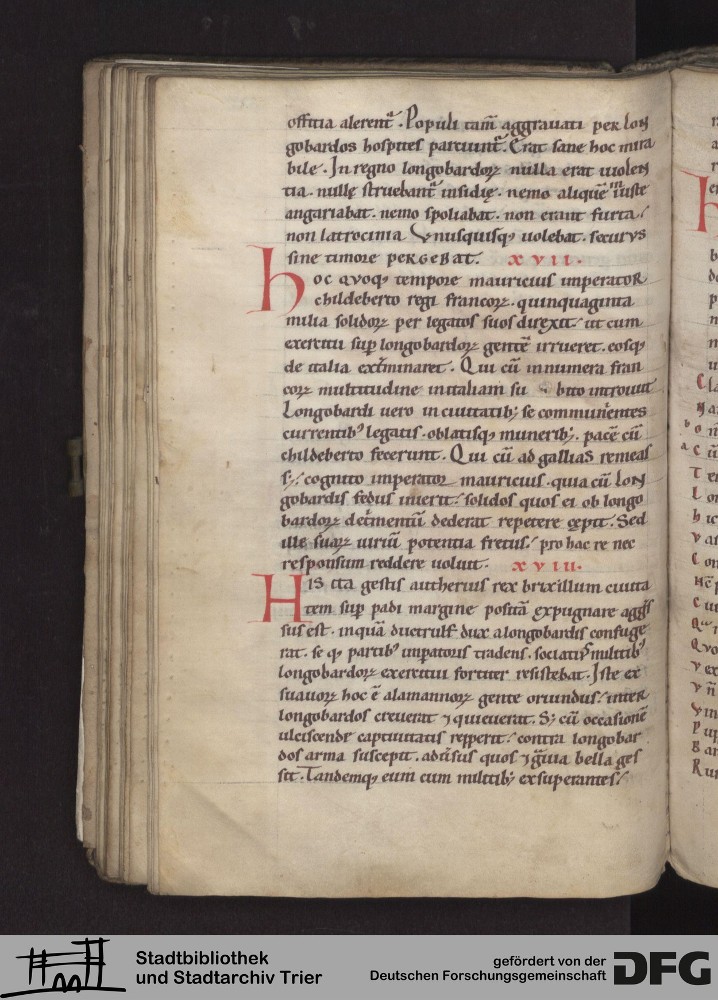 offitia alerent᷒. Populi tam̄ aggrauati per lon
gobardos hospites partiunt᷒. Erat sane hoc mira
bile. In regno longobardoꝝ nulla erat uiolen
tia. nullę struebant᷒ insidię. nemo aliquē iniuste
angariabat. nemo spoliabat. non erant furta.
non latrocinia Vnusquisqꝫ uolebat. securus
sine timore pergebat. xvii.
hoc quoqꝫ tempore mauricius imperator
childeberto regi francoꝝ. quinquaginta
milia solidoꝝ per legatos suos direxit. ut cum
exercitu suꝑ longobardoꝝ gentē irrueret. eosqꝫ
de italia ext̄minaret. Qui cū innumera fran
coꝝ multitudine initaliam su bito introiuit
Longobardi uero in ciuitatibꝫ se communientes
currentibꝰ legatis. oblatisqꝫ muneribꝫ. pacē cū
childeberto fecerunt. Qui cū ad gallias remeas
sꝫ. cognito imperator mauricius. quia cū lon
gobardis fedus inierit. solidos quos ei ob longo
bardoꝝ det̄mentū dederat repetere cępit. Sed
ille suaꝝ uiriū potentia fretus. pro hac re nec
responsum reddere uoluit. xviii.
His ita gestis autherius rex brixillum ciuita
tem suꝑ padi margine positā expugnare aggs̄
sus est. in quā ductrulf dux a longobardis confuge
rat. se qꝫ partibꝰ imꝑatoris tradens. sociatis militibꝰ
longobardoꝝ exercitui fortiter resistebat. Iste ex
suauoꝝ hoc ē alamannoꝝ gente oriundus. inter
longobardos creuerat ⁊ quieuerat. Sꝫ cū occasionē
ulciscende captiuitatis repperit. contra longobar
dos arma suscepit. adūsus quos ⁊ g̃uia bella ges
sit. Tandemqꝫ eum cum militibꝫ exsuperantes.
Stadtbibliothek
und Stadtarchiv Trier
gefördert von der
Deutschen Forschungsgemeinschaft
DFG